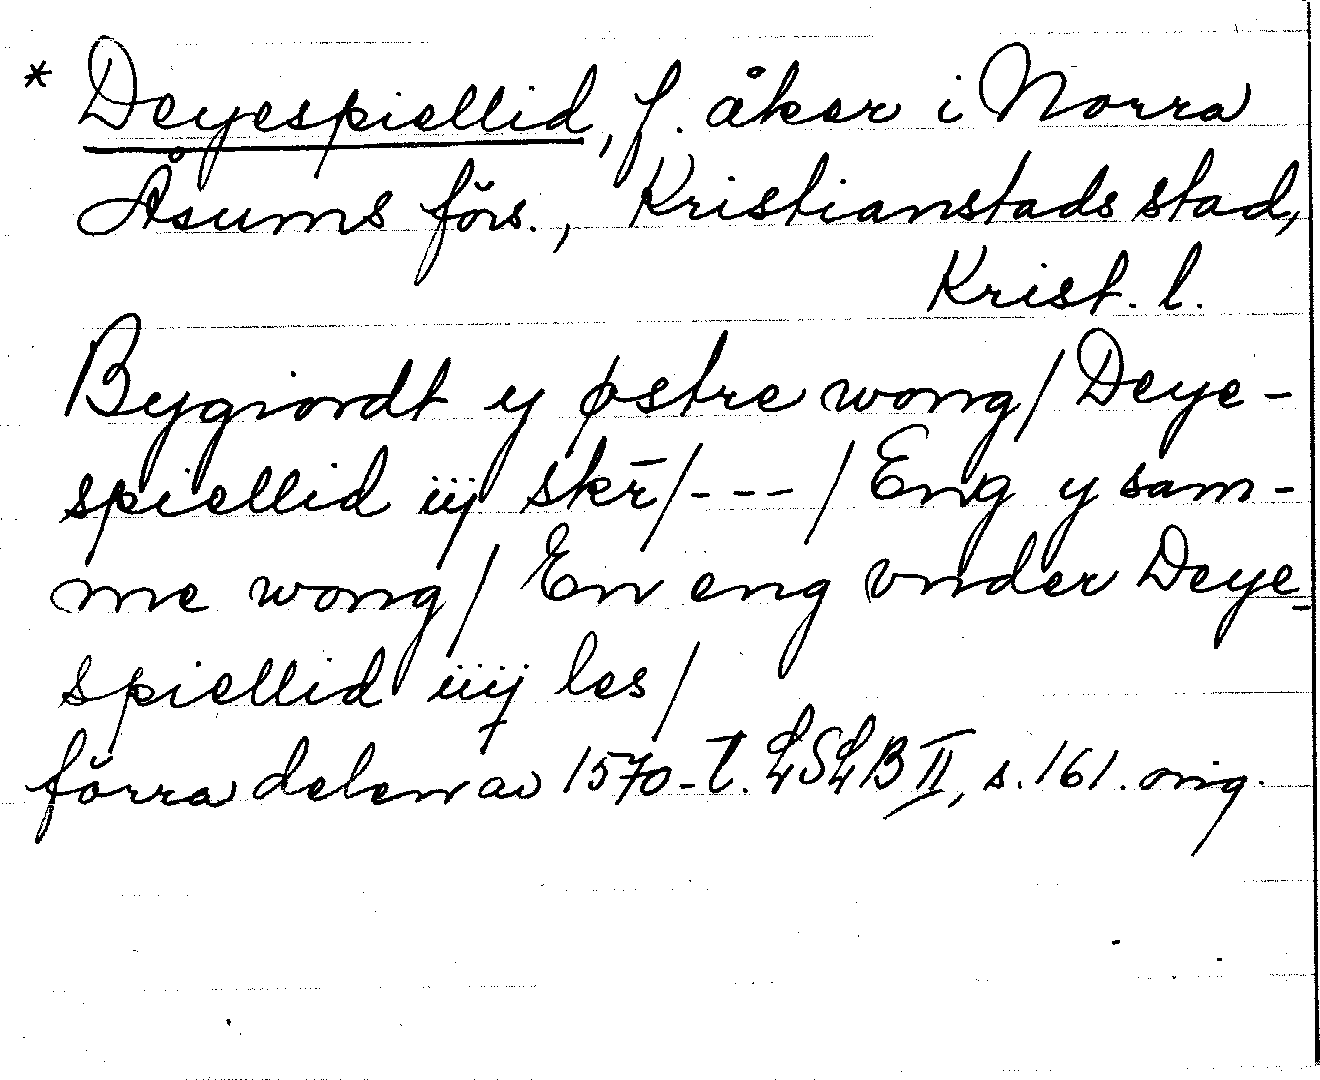 * Deyespiellid, f. åker i Norra
Åsums förs., Kristianstads stad,
Krist. l.
Bygiordt y østre wong / Deye-
spiellid iij skr̄ / - - - / Eng y sam-
me wong / En eng vnder Deye-
spiellid iiij les /
förra delen av 1570-t. LSLB II, s. 161. orig.